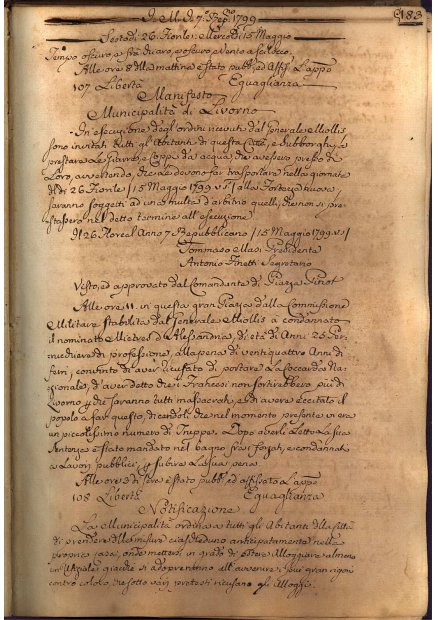 183
I. M. D. 7° Repno 1799
Sestodì 26. Fiorile 1. Mercoldì 15 Maggio
Tempo oscuro, e frà chiaro, e oscuro, e Vento a Scilocco.
Alle ore 8 della mattina è stato pubb., ed Affis. L'appo
107 Libertà Eguaglianza
Manifesto
Municipalità di Livorno
In esecuzione degl'ordini ricevuti dal Generale Miollis
sono invitati tutti gli Abitanti di questa Città, e Subborghi, a
prestare le Giarre, e Coppi da acqua, che avessero presso di
Loro, avvertendo, che le devono far trasportare nella giornata
di 26 Fiorile / 15 Maggio 1799 v.s / alla Fortezza nuova,
saranno soggetti ad una multa d'arbitrio quelli, che non si pre-
stassero nel detto termine all'esecuzione
Dì 26 Floreal Anno 7 Republicano / 15 Maggio 1799. v.s /
Tommaso Masi Presidente
Antonio Segretario
Visto, ed approvato dal Comandante di Piazza
Alle ore 11. in questa gran Piazza dalla Commissione
Militare stabilita dal Generale Miollis à condannato
il nominato di Alessandria, di età di Anni 25
di professione, alla pena di ventiquattro Anni di
ferri, convinto di aver ricusato di portare la Coccarda Na-
zionale, d'aver detto che i Francesi non sortirebbero più di
Livorno, e che saranno tutti massacrati, ed à avere eccitato il
popolo a far questo, dicendoli che nel momento presente vi era
un piccolissimo numero di Truppe. e Dopo averli Letto La sua
Sentenza è stato mandato nel bagno fra i forzati, e condannato
a Lavori pubblici, p subire La sua pena
Alle ore di sera è stato pubb. ed affissato L'appo
108 Libertà Eguaglianza
Notificazione
La Municipalità ordina a tutti gli Abitanti della Città
di prendere delle misure ciascheduno anticipatamente nella
propria casa, onde mettersi in grado di potere Alloggiare almeno
un Uffiziale, giacchè si adopreranno all'avvenire i più gran rigori
contro coloro, che sotto varj pretesti ricusano gli Alloggi.